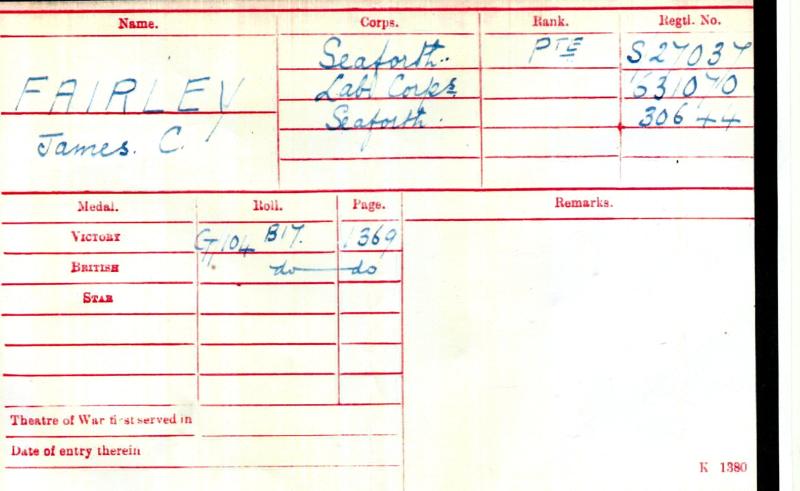 Name. Corps. Rank. Regtl. No.
FAIRLEY Seaforth. PTE S27037
James. C. Lab. Corps. 631070
Seaforth. 30644
Medal. Roll. Page. Remarks.
VICTORY G/104 B17. 1369
BRITISH do do
STAR
Theatre of War first served in
Date of entry therein
K 1380